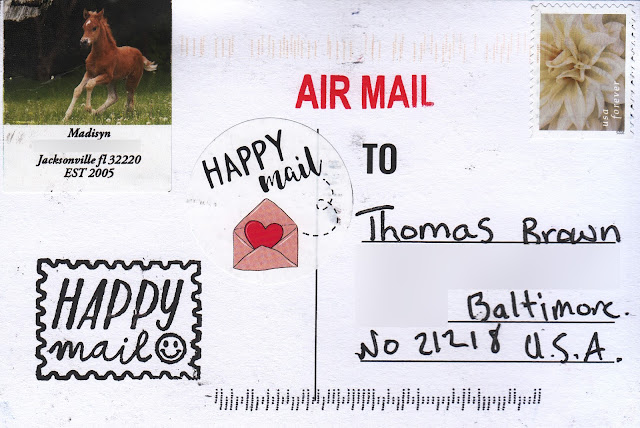 Madisyn
Jacksonville fl 32220
EST 2005
AIR MAIL
usa forever
HAPPY
mail
TO
Thomas Brown
Baltimore.
No 21218 U.S.A.
HAPPY
mail